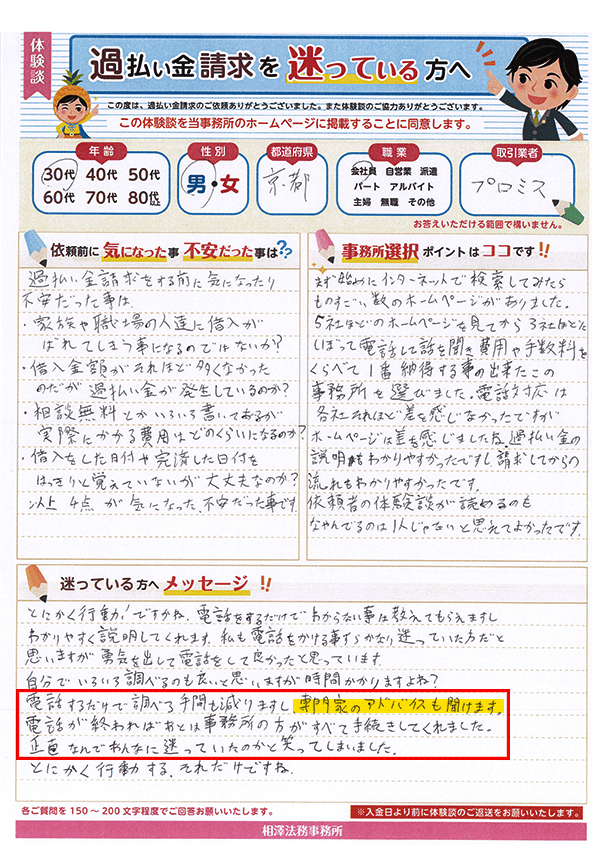 体験談
過払い金請求を迷っている方へ
この度は、過払い金請求のご依頼ありがとうございました。また体験談のご協力ありがとうございます。
この体験談を当事務所のホームページに掲載することに同意します。
年齢
30代 40代 50代
60代 70代 80代
性別
男・女
都道府県
京都
職業
会社員 自営業 派遣
パート アルバイト
主婦 無職 その他
取引業者
プロミス
お答えいただける範囲で構いません。
依頼前に 気になった事 不安だった事は??
過払い金請求をする前に気になったり
不安だった事は
・家族や職場の人達に借入が
ばれてしまう事になるのではないか?
・借入金額がそれほど多くなかった
のだが過払い金が発生しているのか?
・相談無料とかいろいろ書いてあるが
実際にかかる費用はどのくらいになるのか?
・借入をした日付や完済した日付を
はっきりと覚えていないが大丈夫なのか?
以上4点が気になった、不安だった事です
事務所選択 ポイントは ココです!!
まず始めにインターネットで検索してみたら
ものすごい数のホームページがありました。
5社ほどのホームページを見てから3社ほどに
しぼって電話して話を聞き費用や手数料を
くらべて1番納得する事の出来たこの
事務所を選びました。電話対応は
各社それほど差を感じなかったですが
ホームページは差を感じましたね。過払い金の
説明もわかりやすかったですし請求してからの
流れもわかりやすかったです。
依頼者の体験談が読めるのも
なやんでるのは1人じゃないと思えてよかったです。
迷っている方へ メッセージ!!
とにかく行動!ですかね。電話をするだけでわからない事は教えてもらえますし
わかりやすく説明してくれます。私も電話をかける事すらかなり迷っていた方だと
思いますが勇気を出して電話をして良かったと思っています。
自分でいろいろ調べるのも良いと思いますが時間かかりますよね?
電話するだけで調べる手間も減りますし、専門家のアドバイスも聞けます。
電話が終わればあとは事務所の方がすべて手続きしてくれました。
正直なんであんなに迷っていたのかと笑ってしまいました。
とにかく行動する。それだけですね。
各ご質問を150～200文字程度でご回答お願いいたします。
※入金日より前に体験談のご返送をお願いいたします。
相澤法務事務所